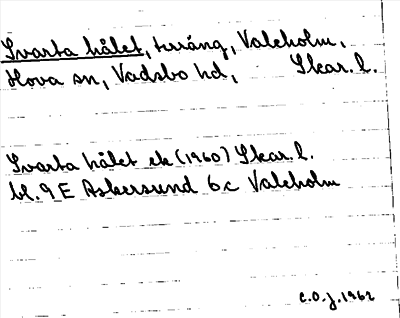 Svarta hålet, terräng, Valekolm,
Hova sn, Vadsbo hd, Skar. l.
Svarta hålet ek (1960) Skar. l.
bl. 9 E Askersund 6c Valekolm
C.O.J. 1962